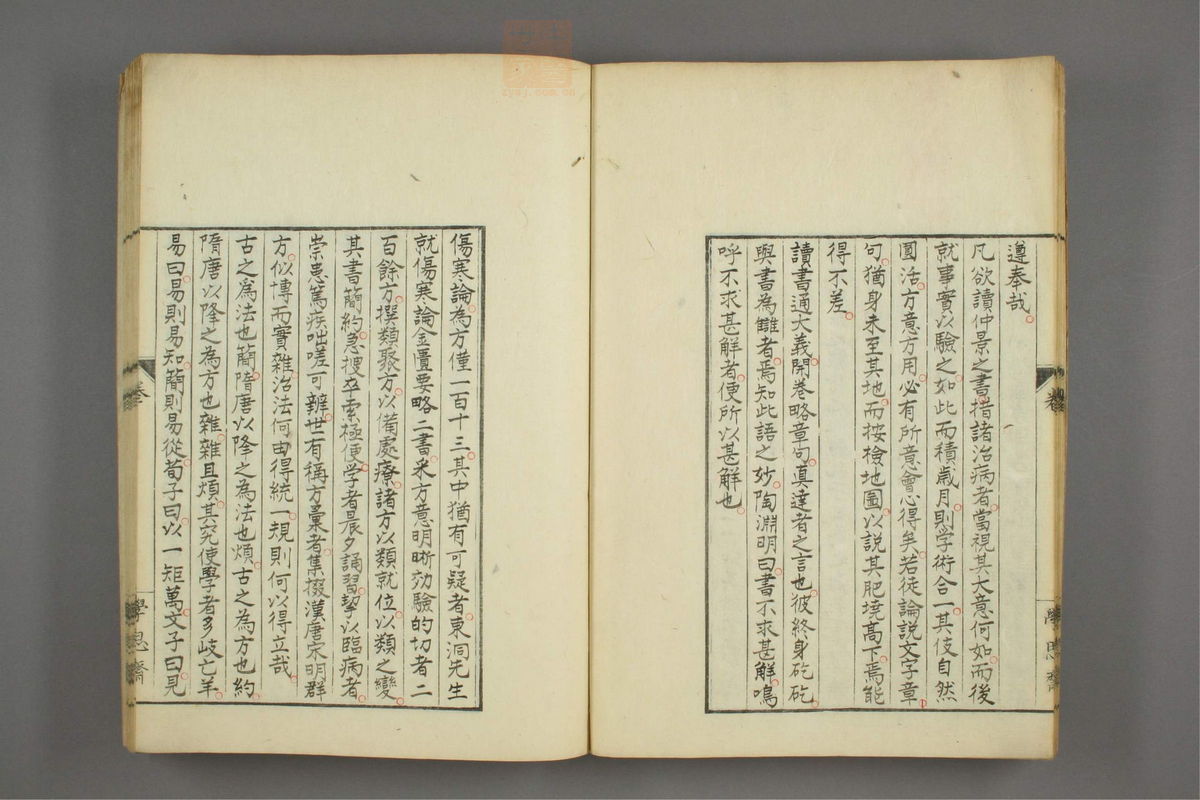 遵奉哉
凡欲讀仲景之書措諸治病者當視其大意何如而後
就事實以驗之如此而積歲月則学術合一其伎自然
圓活方意方用必有所意會心得矣若徒論説文字章
句猶身未至其地而按檢地圖以説其肥墝高下焉能
得不差
讀書通大義開巻略章句眞達者之言也彼終身矻矻
與書為讎者焉知此語之妙陶淵明曰書不求甚解嗚
呼不求甚解者便所以甚解也
傷寒論為方僅一百十三其中猶有可疑者東洞先生
就傷寒論金匱要略二書采方意明晰効驗的切者二
百餘方撰類聚方以備處療諸方以類就位以類之變
其書簡約急搜卒索極便学者晨夕誦習挈以臨病者
崇患篤疾咄嗟可辦世有稱方彙者集掇漢唐宋明群
方似博而實雜治法何由得統一規則何以得立哉
古之為法也簡隋唐以降之為法也煩古之為方也約
隋唐以降之為方也雜雜且煩其究使學者多岐亡羊
易曰易則易知簡則易從荀子曰以一矩萬文子曰見
巻
學思齋
學思齋
zysj.com.cn